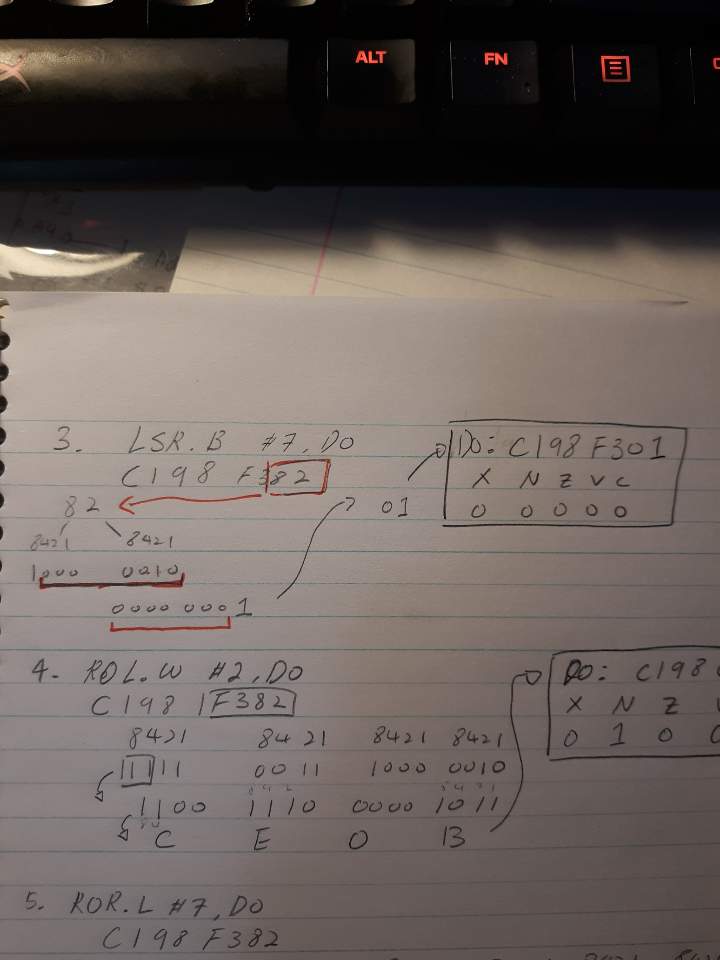 ALT FN
3. LSR.B #7, DO
C198 F382
82
8421 8421
1000 0010
0000 0001
01
DO: C198 F301
X N Z V C
0 0 0 0 0
4. ROL.W #2, DO
C198 F382
8421 8421 8421 8421
1111 0011 1000 0010
1100 1110 0000 1011
C E 0 B
DO: C198
X N Z
0 1 0
5. ROR.L #7, DO
C198 F382